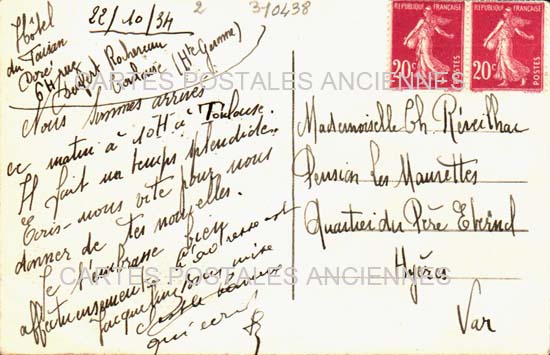 Hôtel
du Faisan
Doré
22/10/34
2
3-10438
64 rue
Toulouse (Hte Garonne)
Nous sommes arrivés
ce matin à 10H à Toulouse.
Il fait un temps splendide.
Ecris-nous vite pour nous
donner de tes nouvelles.
Je t'embrasse bien
affectueusement
Jacqueline
qui écrit
REPUBLIQUE FRANÇAISE
20c
POSTES
REPUBLIQUE FRANÇAISE
20c
POSTES
Mademoiselle Ch Réveilhac
Pension Les Mauvettes
Quartier du Père Eternel
Hyères
Var
CARTES POSTALES ANCIENNES
CARTES POSTALES ANCIENNES